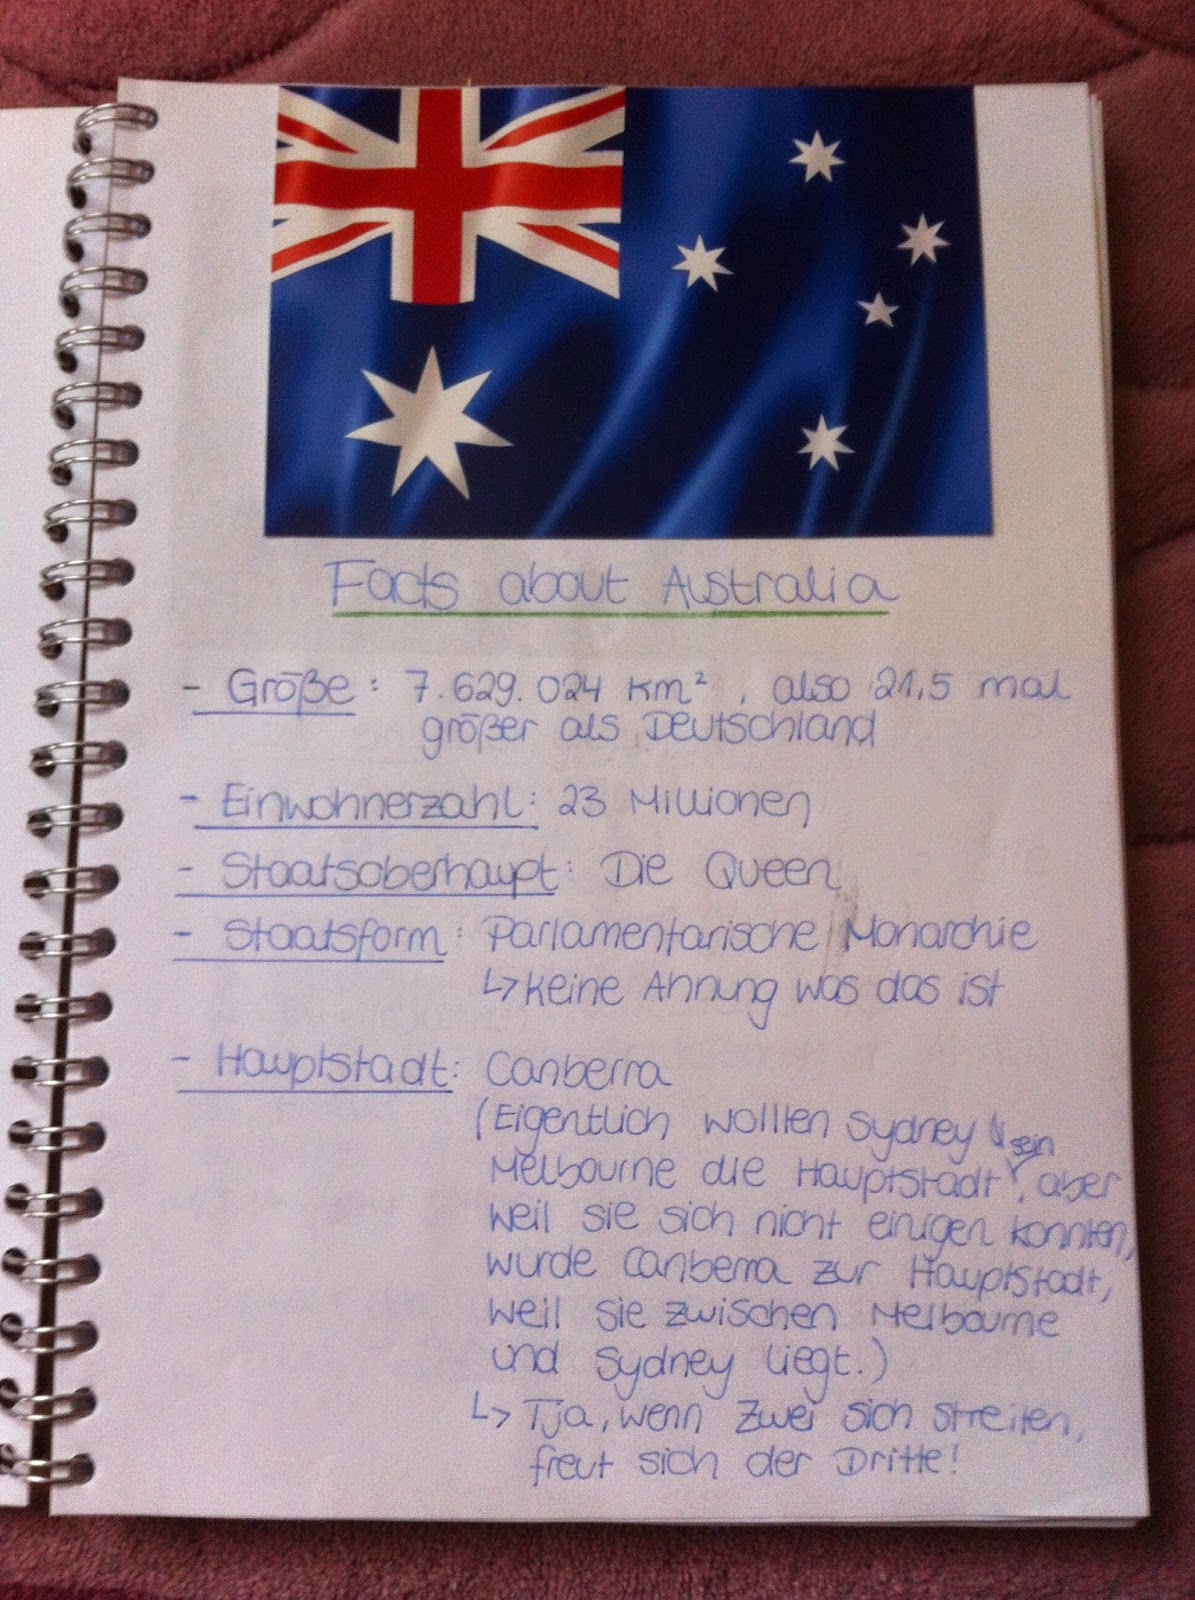 Facts about Australia
- Größe: 7.629.024 km², also 21,5 mal
größer als Deutschland
- Einwohnerzahl: 23 Millionen
- Staatsoberhaupt: Die Queen
- Staatsform: Parlamentarische Monarchie
↳ Keine Ahnung was das ist
- Hauptstadt: Canberra
(Eigentlich wollten Sydney &
Melbourne die Hauptstadt sein, aber
weil sie sich nicht einigen konnten,
wurde Canberra zur Hauptstadt,
weil sie zwischen Melbourne
und Sydney liegt.)
↳ Tja, wenn zwei sich streiten,
freut sich der Dritte!